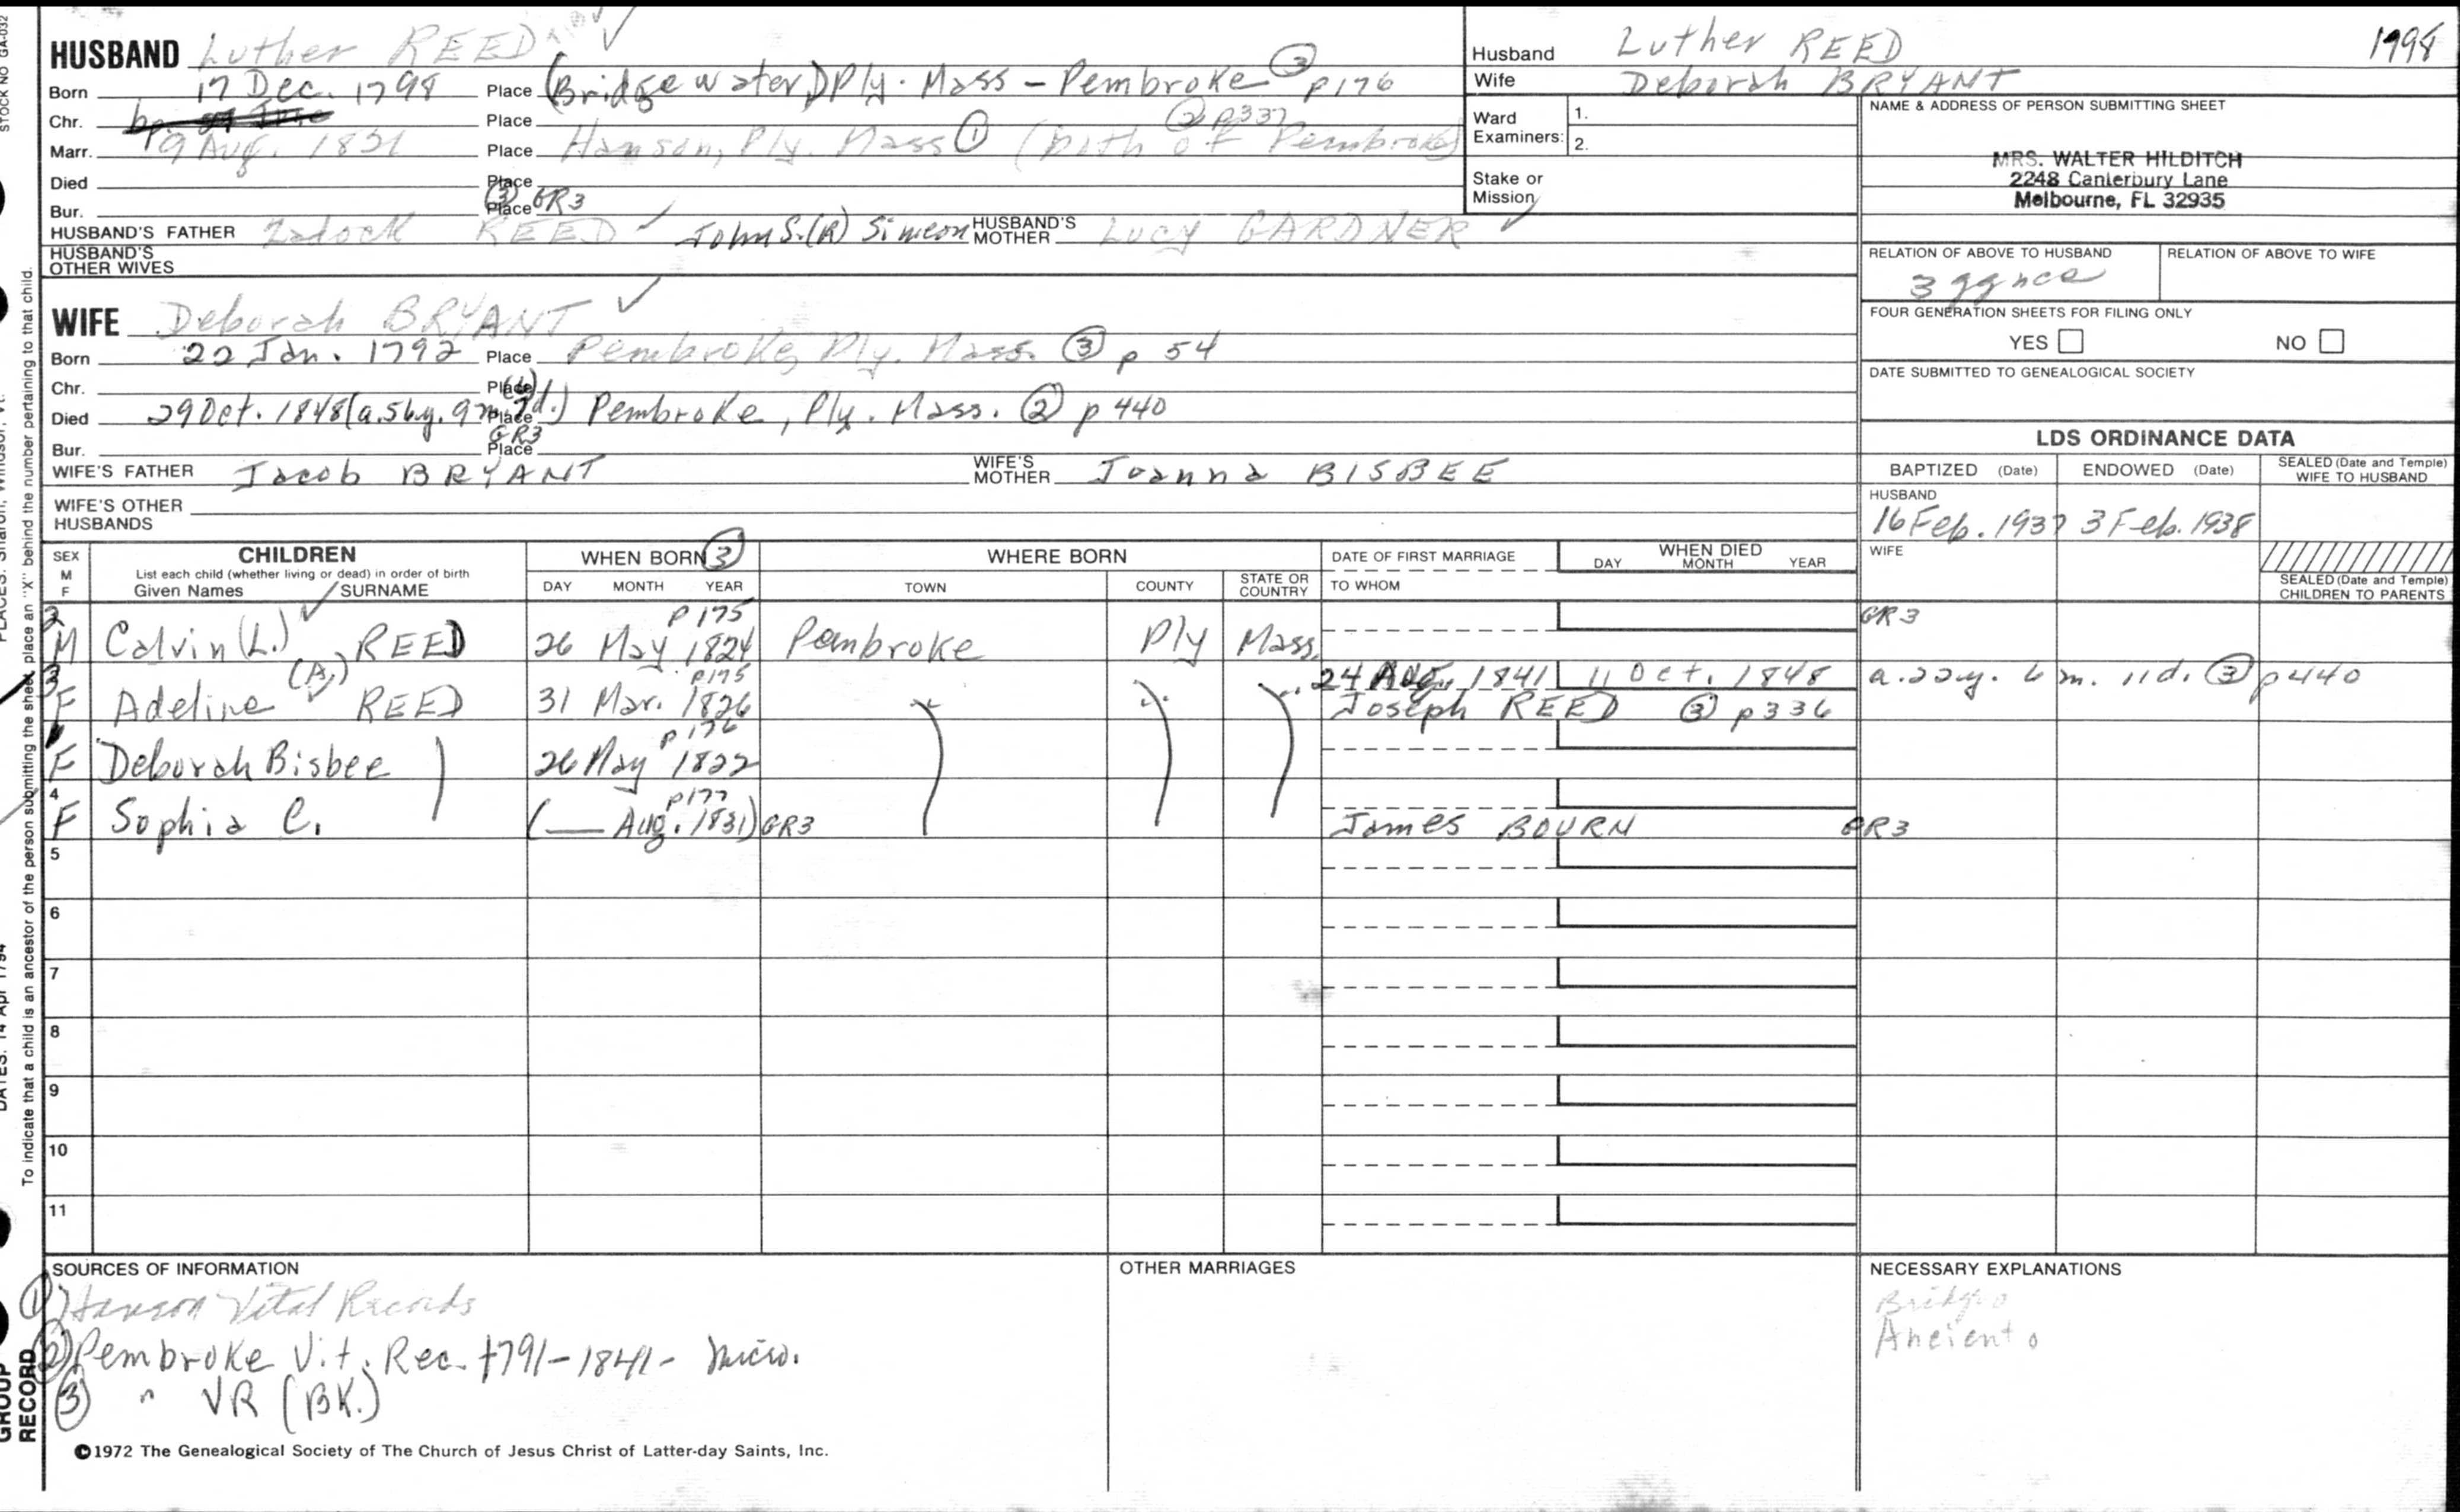 HUSBAND Luther REED
Born 17 Dec. 1798 Place (Bridgewater) Ply. Mass - Pembroke ③ p176
Chr. Place ② p337
Marr. 19 Aug. 1821 Place Hanson, Ply. Mass ① (both of Pembroke)
Died Place
Bur. Place ③ GR3
HUSBAND'S FATHER Zadock REED John S. (R) Simeon HUSBAND'S MOTHER Lucy GARDNER
HUSBAND'S OTHER WIVES
Husband Luther REED 1798
Wife Deborah BRYANT
Ward Examiners: 1.
2.
Stake or Mission
NAME & ADDRESS OF PERSON SUBMITTING SHEET
MRS. WALTER HILDITCH
2248 Canterbury Lane
Melbourne, FL 32935
RELATION OF ABOVE TO HUSBAND RELATION OF ABOVE TO WIFE
3 ggnce
WIFE Deborah BRYANT
Born 22 Jan. 1792 Place Pembroke, Ply. Mass. ③ p 54
Chr. Place
Died 29 Oct. 1848 (a. 56y. 9m. 7d.) Place Pembroke, Ply. Mass. ② p 440
Bur. Place GR3
WIFE'S FATHER Jacob BRYANT WIFE'S MOTHER Joanna BISBEE
WIFE'S OTHER HUSBANDS
FOUR GENERATION SHEETS FOR FILING ONLY
YES NO
DATE SUBMITTED TO GENEALOGICAL SOCIETY
LDS ORDINANCE DATA
BAPTIZED (Date) ENDOWED (Date) SEALED (Date and Temple) WIFE TO HUSBAND
HUSBAND
16 Feb. 1937 3 Feb. 1938
WIFE
SEALED (Date and Temple) CHILDREN TO PARENTS
SEX M F
CHILDREN
List each child (whether living or dead) in order of birth
Given Names SURNAME
WHEN BORN ③
DAY MONTH YEAR
WHERE BORN
TOWN COUNTY STATE OR COUNTRY
DATE OF FIRST MARRIAGE
TO WHOM
WHEN DIED
DAY MONTH YEAR
2 M Calvin (L.) REED 26 May 1824 p175 Pembroke Ply Mass. GR3
3 F Adeline (A.) REED 31 Mar. 1826 p175 24 Aug. 1841 11 Oct. 1848 a. 22y. 6m. 11d. ③ p440
Joseph REED ③ p336
1 F Deborah Bisbee 26 May 1822 p176
4 F Sophia C. (— Aug. 1831) p177 GR3 James BOURN GR3
5
6
7
8
9
10
11
SOURCES OF INFORMATION
① Hanson Vital Records
② Pembroke Vit. Rec. 1791-1841- micro.
③ " VR (BK.)
OTHER MARRIAGES
NECESSARY EXPLANATIONS
Bridge
Ancient
©1972 The Genealogical Society of The Church of Jesus Christ of Latter-day Saints, Inc.
To indicate that a child is an ancestor of the person submitting the sheet, place an "X" behind the number pertaining to that child.
STOCK NO GA-032
GROUP RECORD